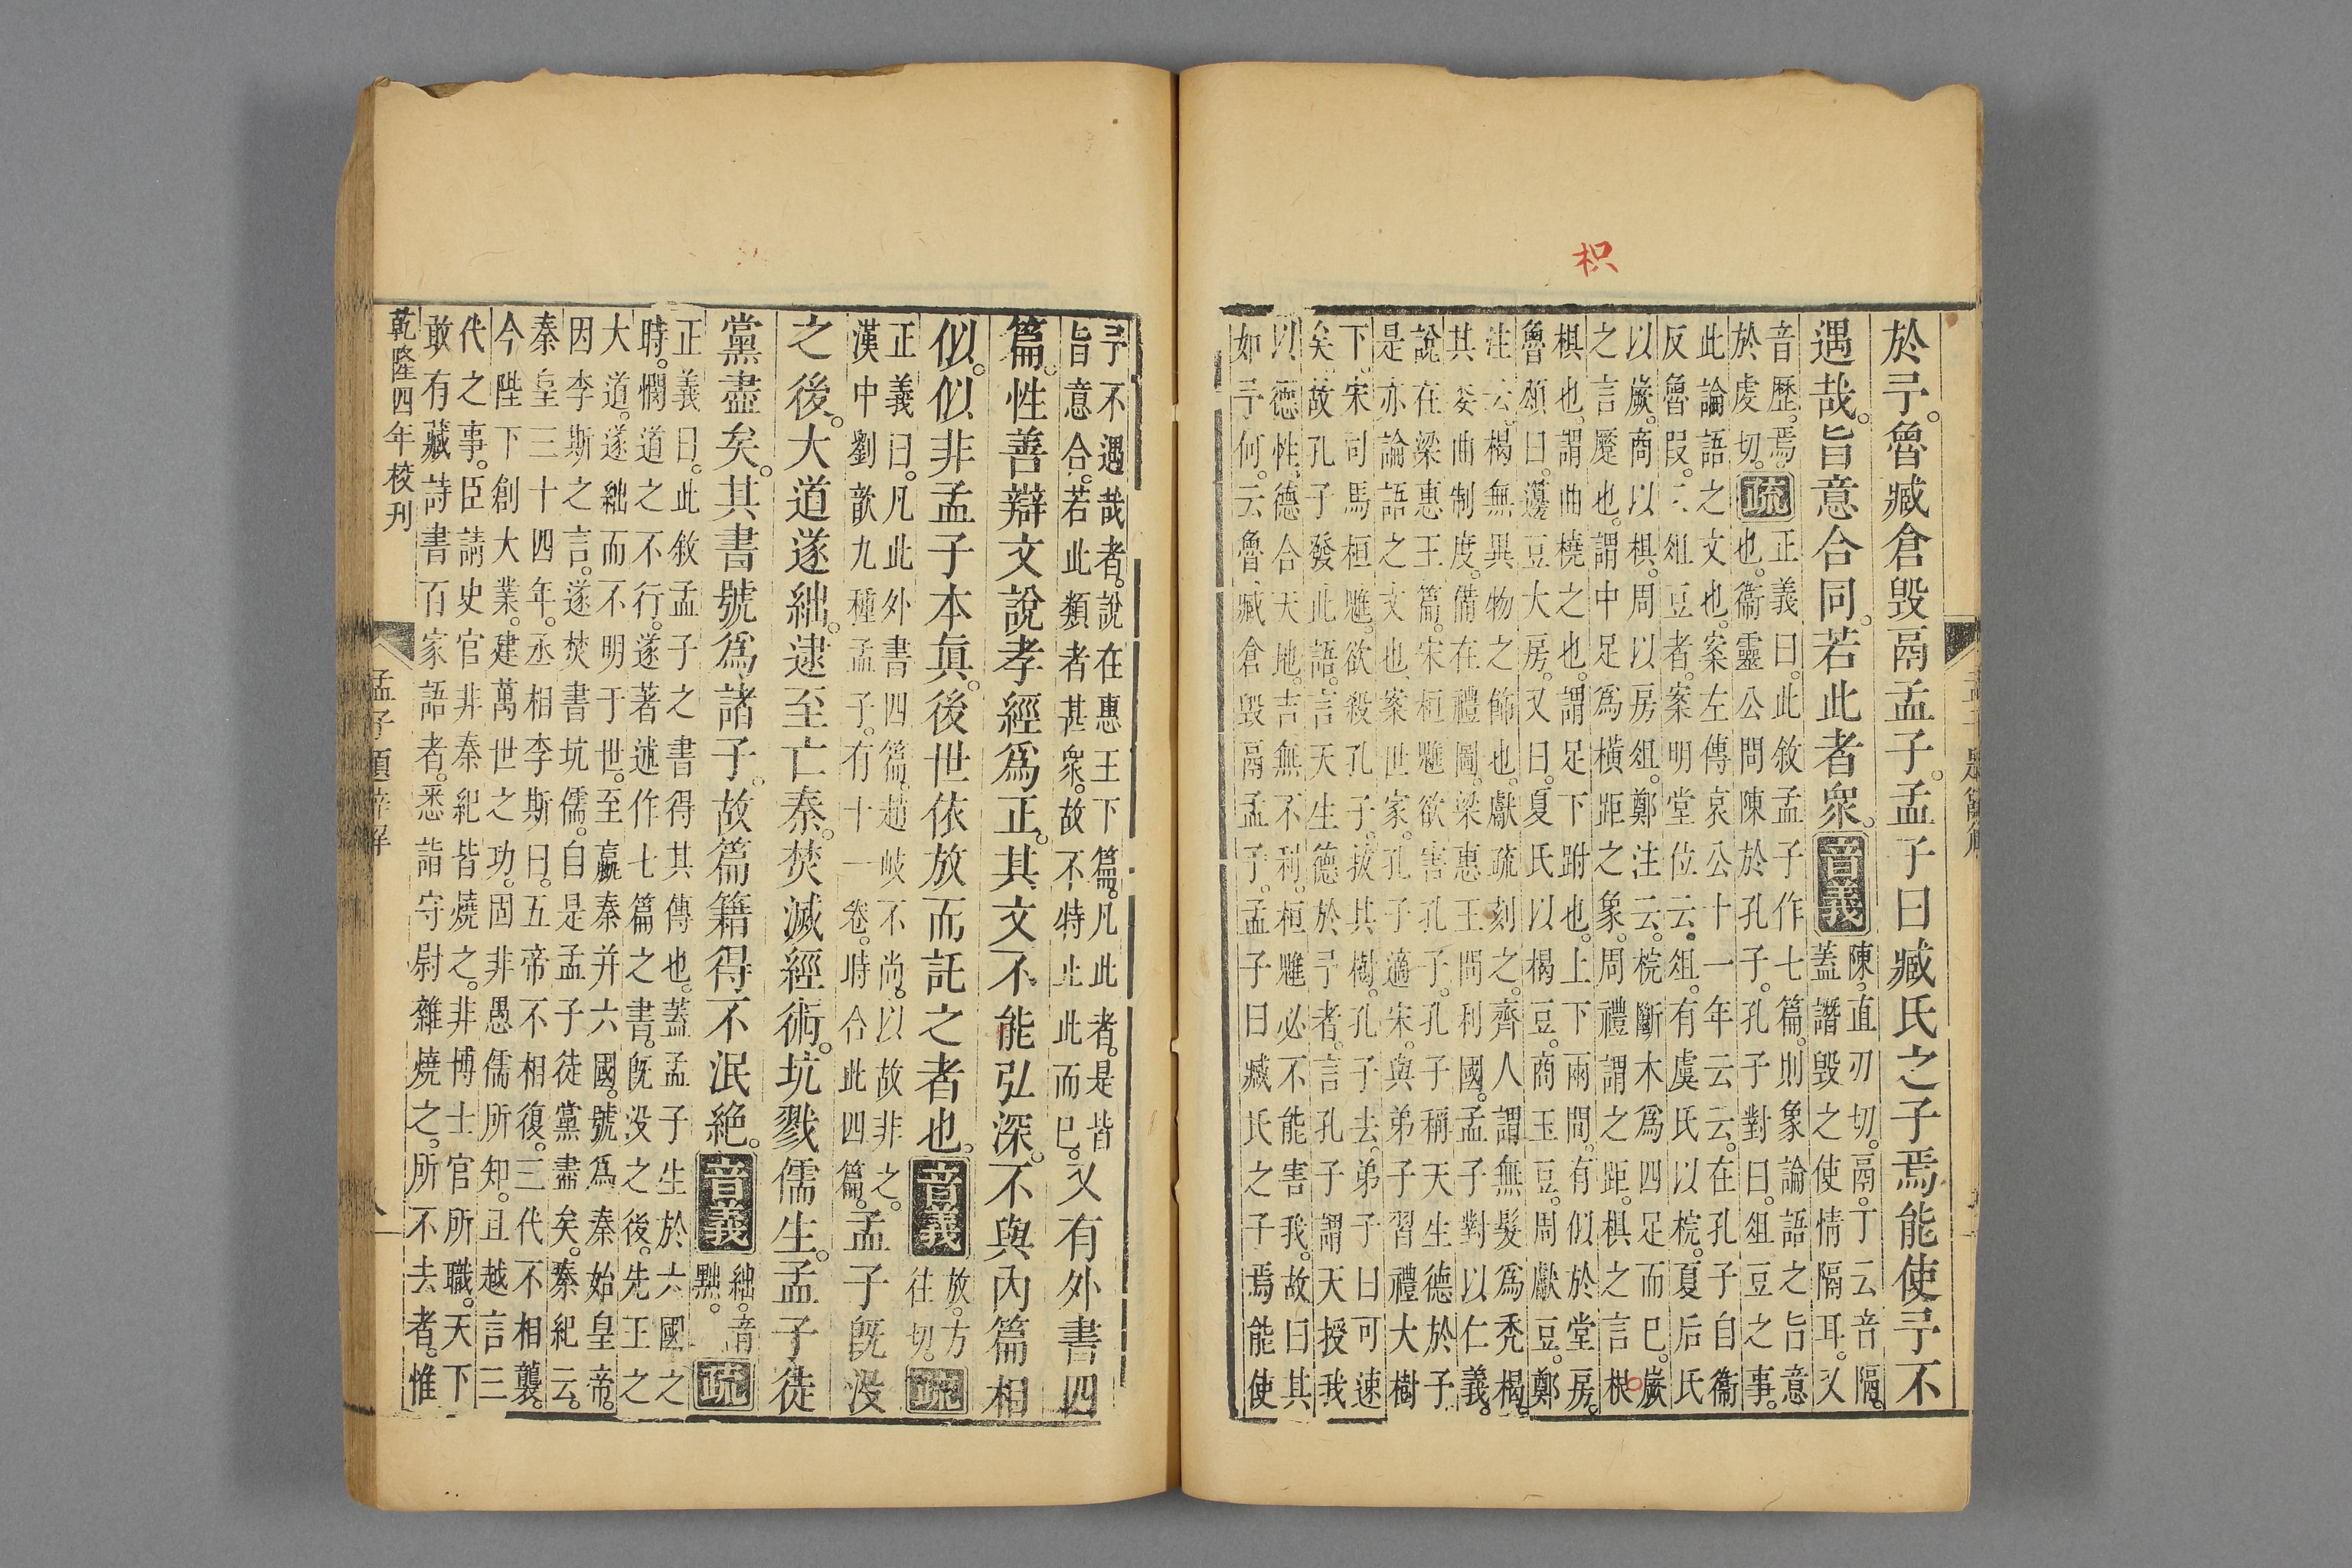 枳
於予。魯臧倉毁鬲孟子。孟子曰臧氏之子焉能使予不
遇哉。旨意合同。若此者衆。音義
陳。直刃切。鬲。丁云音隔。
蓋譖毁之使情隔耳。又
音歷。焉。
於虔切。
疏
正義曰。此敘孟子作七篇。則象論語之旨意
也。衞靈公問陳於孔子。孔子對曰。俎豆之事。
此論語之文也。案左傳哀公十一年云云。在孔子自衞
反魯叚。云俎豆者。案明堂位云。俎。有虞氏以梡。夏后氏
以嶡。商以棋。周以房俎。鄭注云。梡斷木爲四足而已。嶡
之言蹷也。謂中足爲橫距之象。周禮謂之距。棋之言枳
棋也。謂曲橈之也。謂足下跗也。上下兩間。有似於堂房。
魯頌曰。籩豆大房。又曰。夏氏以楬豆。商玉豆。周獻豆。鄭
注云。楬無異物之飾也。獻疏刻之。齊人謂無髮爲禿楬。
其委曲制度。備在禮圖。梁惠王問利國。孟子對以仁義。
說在梁惠王篇。宋桓魋欲害孔子。孔子稱天生德於予
是亦論語之文也。案世家。孔子適宋。與弟子習禮大樹
下。宋司馬桓魋。欲殺孔子。拔其樹。孔子去。弟子曰可速
矣。故孔子發此語。言天生德於予者。言孔子謂天授我
以德性。德合天地。吉無不利。桓魋必不能害我。故曰其
如予何。云魯臧倉毁鬲孟子。孟子曰臧氏之子焉能使
予不遇哉者。說在惠王下篇。凡此者。是皆
旨意合。若此類者甚衆。故不特止此而已。
又有外書四
篇。性善辯文說孝經爲正。其文不能弘深。不與內篇相
似。似非孟子本眞。後世依放而託之者也。音義
放。方
往切。
疏
正義曰。凡此外書四篇。趙岐不尚。以故非之。
漢中劉歆九種孟子。有十一卷。時合此四篇。
孟子旣没
之後。大道遂絀。逮至亡秦。焚滅經術。坑戮儒生。孟子徒
黨盡矣。其書號爲諸子。故篇籍得不泯絶。音義
絀。音
黜。
疏
正義曰。此敘孟子之書得其傳也。蓋孟子生於六國之
時。憫道之不行。遂著述作七篇之書。旣没之後。先王之
大道。遂絀而不明于世。至嬴秦并六國。號爲秦始皇帝。
因李斯之言。遂焚書坑儒。自是孟子徒黨盡矣。秦紀云。
秦皇三十四年。丞相李斯曰。五帝不相復。三代不相襲。
今陛下創大業。建萬世之功。固非愚儒所知。且越言三
代之事。臣請史官非秦紀皆燒之。非博士官所職。天下
敢有藏詩書百家語者。悉詣守尉雜燒之。所不去者。惟
乾隆四年校刊
孟子題辭解
八